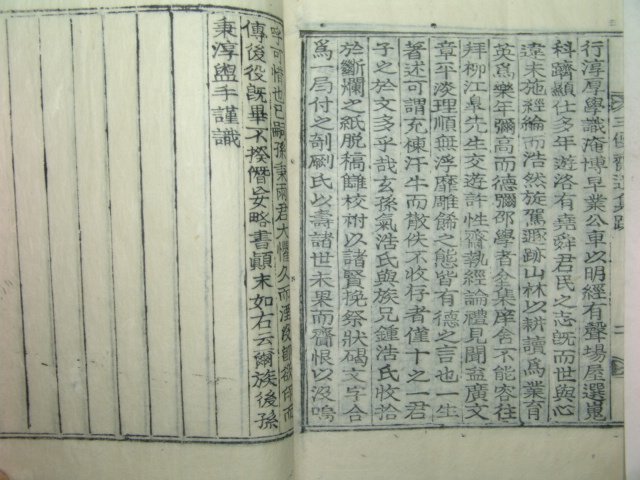 行淳厚學識淹博早業公車以明經有聲場屋選嵬
科躋顯仕多年遊洛有堯舜君民之志旣而世與心
違未施經綸而浩然旋駕遯跡山林以耕讀爲業育
英爲樂年彌高而德彌卲學者全集座舍不能容往
拜柳江皐先生交遊許性齋執經論禮見聞益廣文
章平淡理順無浮靡雕餙之態皆有德之言也一生
著述可謂充棟汗牛而散佚不收存者僅十之一君
子之於文多乎哉玄孫氣浩氏與族兄鍾浩氏收拾
於斷爛之紙脱稿雠校附以諸賢挽祭狀碣文字合
爲一局付之剞劂氏以壽諸世未果而齎恨以沒嗚
呼可惜也已嗣孫秉爾君大懼久而湮沒
傳後役旣畢不揆僭妄略書顚末如右云爾族後孫
秉淳盥手謹識